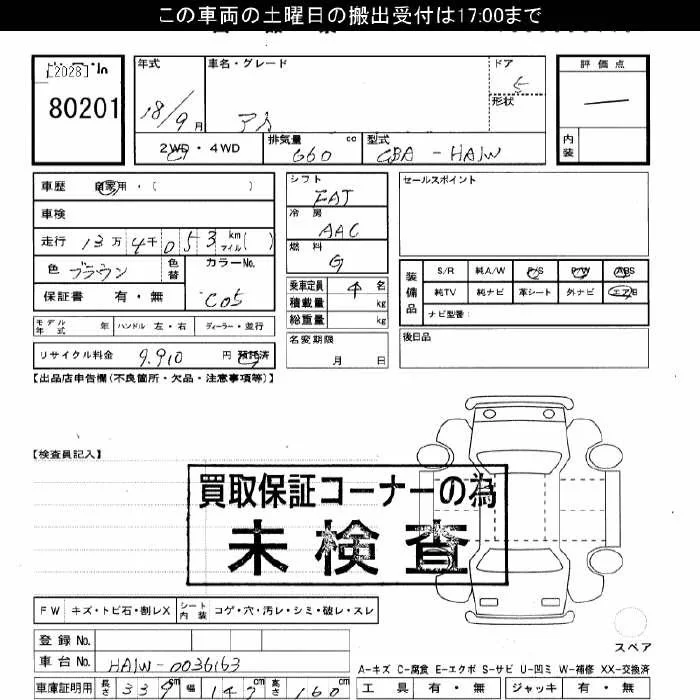 この車両の土曜日の搬出受付は17:00まで
[2028]
80201
年式
車名・グレード
ドア
5
形状
評価点
18/9月
アイ
内装
2WD・4WD
排気量 cc
660
型式
CBA-HA1W
車歴 自家用・( )
シフト
FAT
セールスポイント
車検
冷房
AAC
走行 13万4千053 km マイル( )
燃料
G
色 ブラウン
色替
カラーNo.
C05
保証書 有・無
乗車定員 4 名
積載量 kg
総重量 kg
装備品
S/R 純A/W P/S P/W ABS
純TV 純ナビ 革シート 外ナビ エアB
ナビ型番:
モデル年式 年 ハンドル 左・右 ディーラー・並行
名変期限
月 日
後日品
リサイクル料金 9,910 円 預託済
【出品店申告欄(不良箇所・欠品・注意事項等)】
【検査員記入】
買取保証コーナーの為
未検査
FW キズ・トビ石・割レX シート内装 コゲ・穴・汚レ・シミ・破レ・スレ
スペア
登録No.
車台No. HA1W-0036163
A-キズ C-腐食 E-エクボ S-サビ U-凹ミ W-補修 XX-交換済
車庫証明用 長さ 339cm 幅 147cm 高さ 160cm
工具 有・無 ジャッキ 有・無